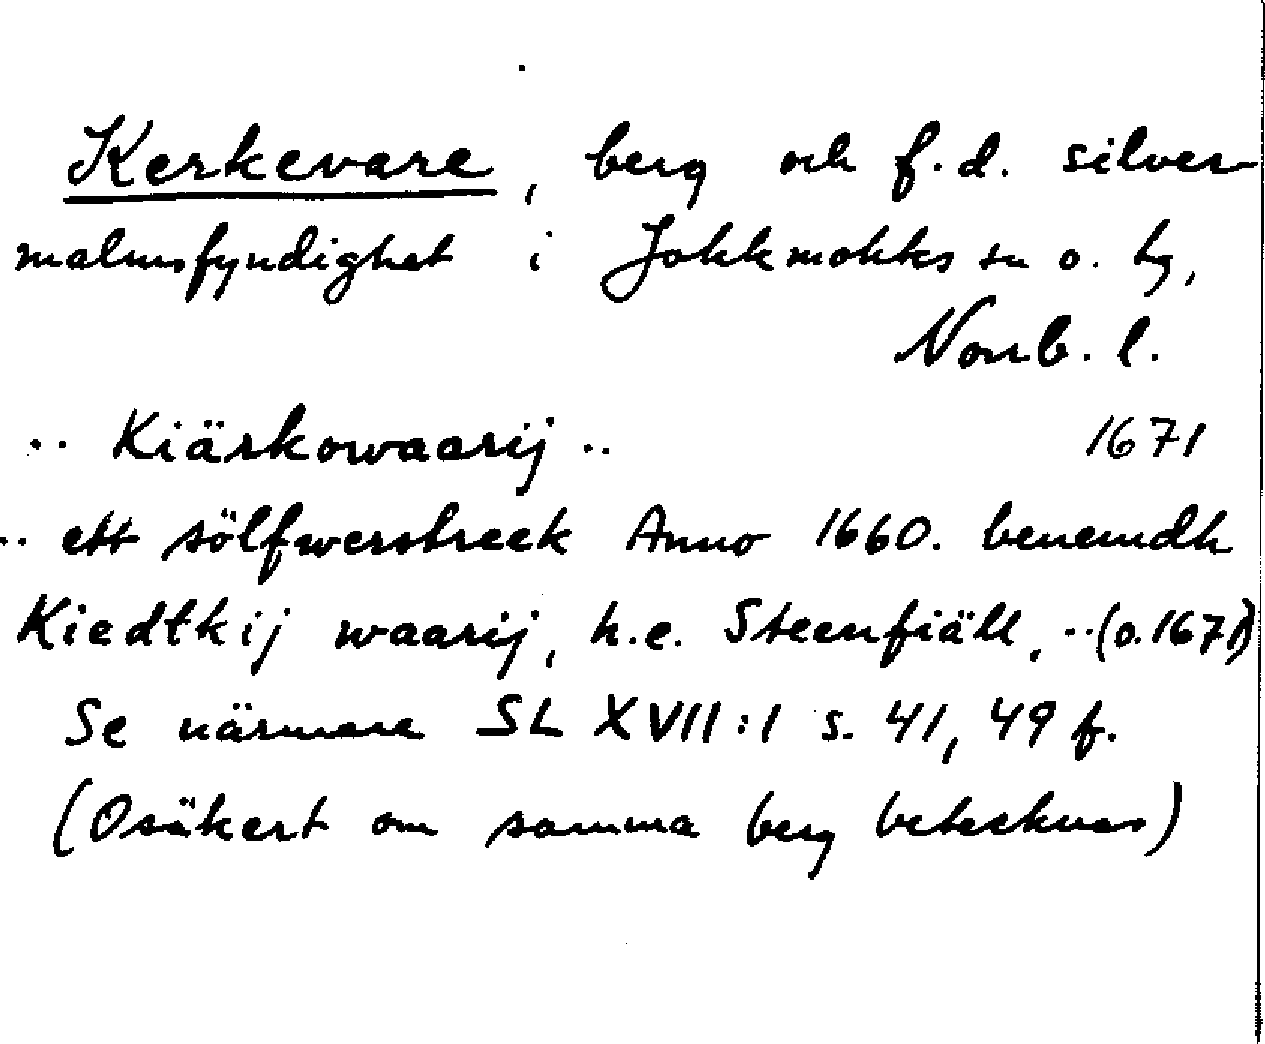 Kerkevare, berg och f.d. silver-
malmsfyndighet i Jokkmokks sn o. tg,
Norrb. l.
.. Kiärkowaarij .. 1671
.. ett sölfwerstreek Anno 1660. benemdh
Kiedtkij waarij, h.e. Steenfiäll, ..(o.1671)
Se närmare SL XVII:1 s. 41, 49 f.
(Osäkert om samma berg betecknas)